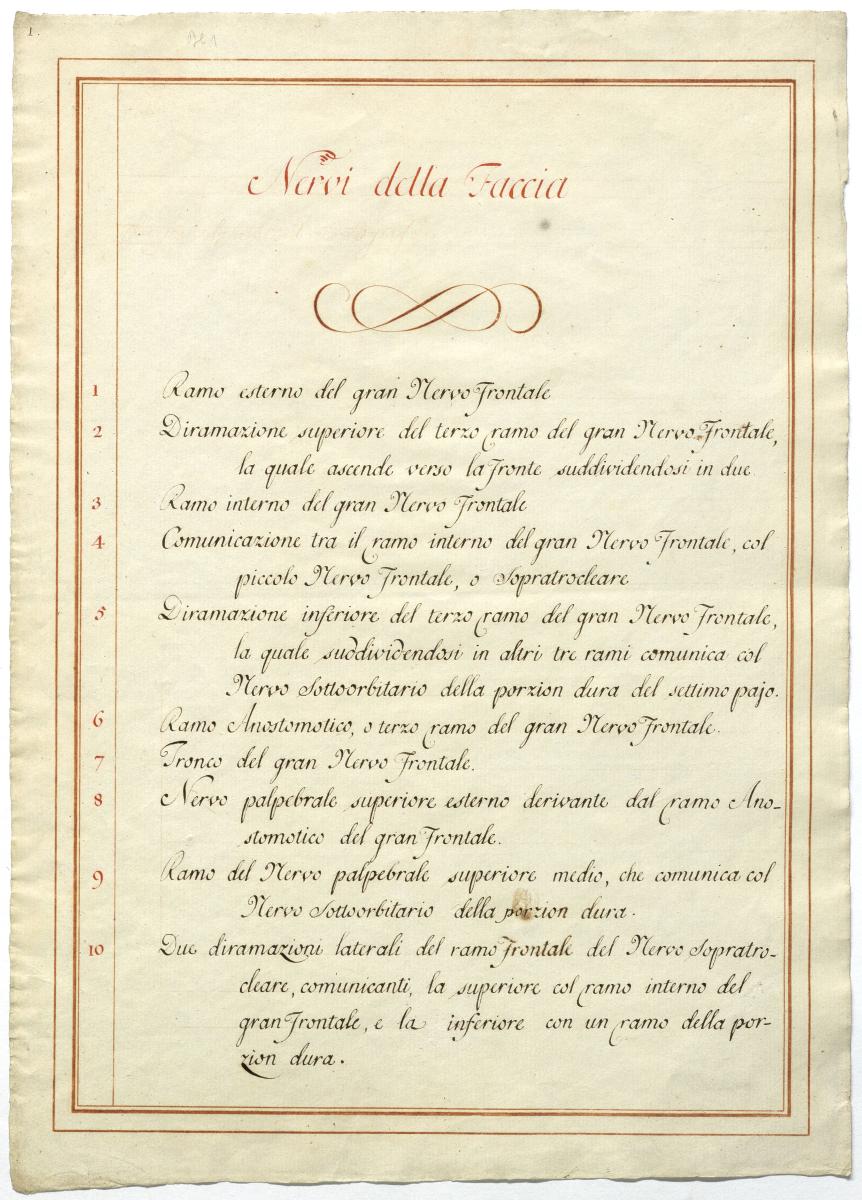 1.
Nervi della Faccia
1 Ramo esterno del gran Nervo Frontale
2 Diramazione superiore del terzo ramo del gran Nervo Frontale,
la quale ascende verso la Fronte suddividendosi in due
3 Ramo interno del gran Nervo Frontale
4 Comunicazione tra il ramo interno del gran Nervo Frontale, col
piccolo Nervo Frontale, o Sopratrocleare
5 Diramazione inferiore del terzo ramo del gran Nervo Frontale,
la quale suddividendosi in altri tre rami comunica col
Nervo Sottoorbitario della porzion dura del settimo pajo.
6 Ramo Anostomotico, o terzo ramo del gran Nervo Frontale.
7 Tronco del gran Nervo Frontale.
8 Nervo palpebrale superiore esterno derivante dal ramo Ano-
stomotico del gran Frontale.
9 Ramo del Nervo palpebrale superiore medio, che comunica col
Nervo Sottoorbitario della porzion dura.
10 Due diramazioni laterali del ramo Frontale del Nervo Sopratro-
cleare, comunicanti, la superiore col ramo interno del
gran Frontale, e la inferiore con un ramo della por-
zion dura.